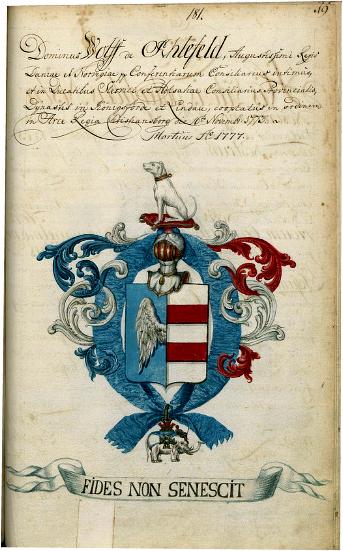 181.
19
Dominus Wolff de Ahlefeld, Augustissimi Regis
Daniæ et Norvegiæ Conferentiarum Consiliarius intimus,
et in Ducatibus et Holsatiæ Consiliarius Provincialis,
Dynasta in Königsförde et Lindau, cooptatus in ordinem
in Arce Regia Christiansborg die Novembr
Mortuus 1777.
FIDES NON SENESCIT